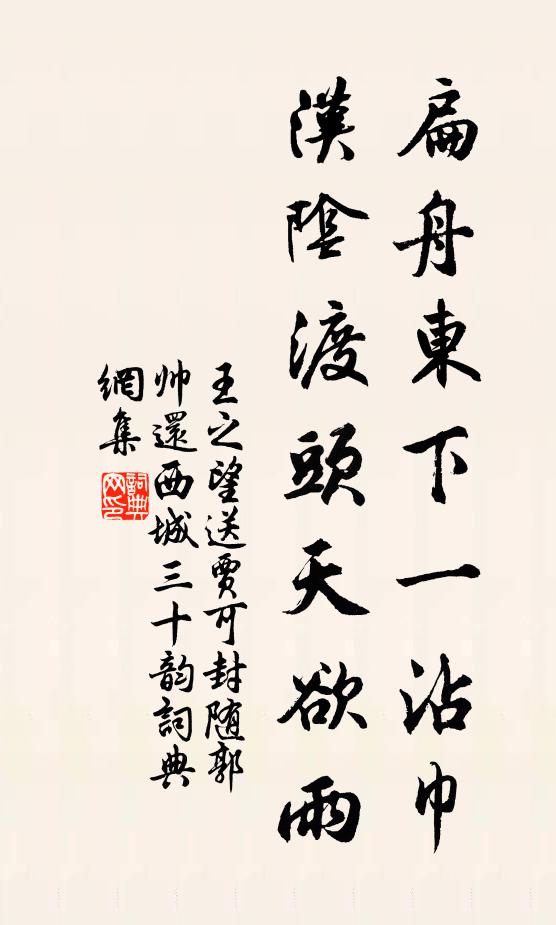 扁舟東下一沾巾
漢陰渡頭天欲雨
王之望送賈可封随郭
帅還西城三十韵詞典
網集
詞典
网印